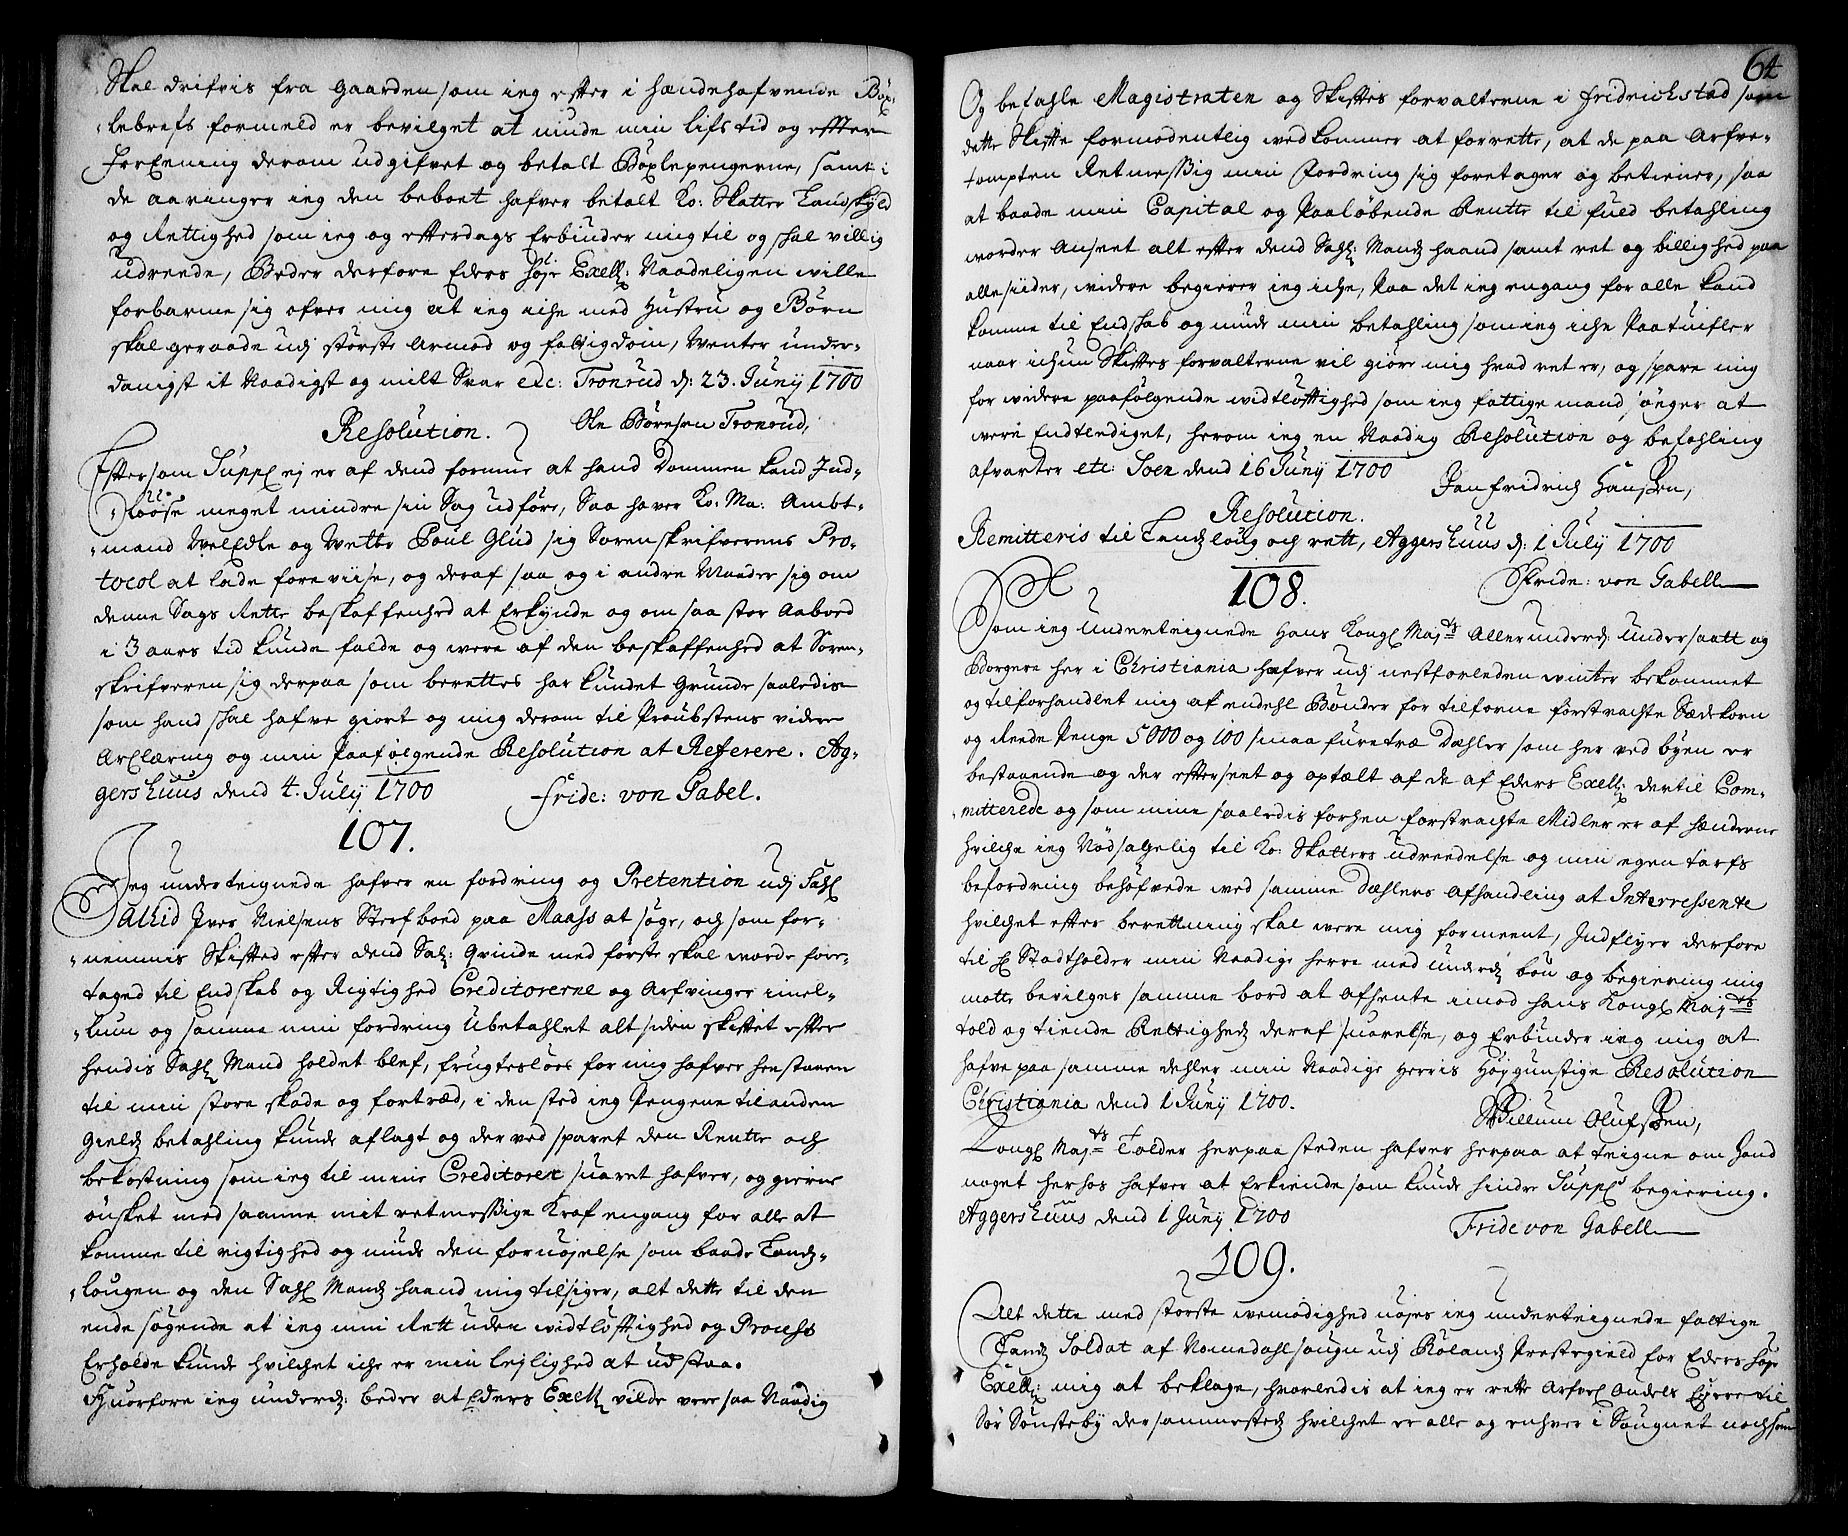 Skal drifvis fra Gaarden som ieg efter i hændehafvende Böx-
lebrefs formeld er bevilget at niude min lifs tid og effter
ForEening derom udgifvet og betalt Böxlepengerne, samt i
de aaringer ieg den beboet hafver betalt Ko: Skatter Landskyld
og Rettighed som ieg og efterdags Erbinder mig til og skal villig
udreede, Beder derfore Eders Höje Exell: Naadeligen wille
forbarme sig ofver mig at ieg iche med Hustru og Börn
skal geraade udj störste Armod og fattigdom, Venter under-
danigst it Naadigst og milt Svar etc: Tronrud d: 23. Junij 1700
Ole Börresen Tronrud,
Resolution.
Eftersom Suppl ej er af dend formue at hand Dommen kand Ind-
löse meget mindre sin Sag udföre, Saa haver Ko: Ma: Ambt-
mand WelEdle og Wette Poul Glud sig Sorenskrifverens Pro-
tocol at lade foreviise, og deraf saa og i andre Maader sig om
denne Sags Rette beskaffenhed at Erkynde og om saa stor Aaboed
i 3 aars tid kunde falde og were af den beskaffenhed at Soren-
skrifveren sig derpaa som berettes har kundet Grunde saaledis
som hand skal hafve giort og mig derom til Proubstens videre
Erclæring og min Paafølgende Resolution at Referere. Ag-
gershuus dend 4. July 1700 Fride: von Gabel.
107.
Jeg underteignede hafver en fordring og Pretention udj Sahl
Iver Nielsens Sterfboed paa Maass at søge, och som for-
nemmis Skifted efter dend Sal: Qvinde med förste skal worde fore-
taged til Endskab og Rigtighed Creditorerne og Arfvinger imel-
lum og samme min fordring Ubetahlet alt siden skiftet efter
hendis Sahl Mand holdet blef, frugteslöes for mig hafver henstaaen
til min store skade og fortræd, i den sted ieg Pengene til anden
Gields betahling kunde aflagt og der ved sparet den Rentte och
bekostning som ieg til mine Creditorer suaret hafver, og gierne
önsket med saamme mit retmessige Kraf engang for alle at
komme til rigtighed og niude den fornöjelse som baade Landz-
lougen og den Sahl Mandz haand mig tilsiger, alt dette til den
ende søgende at ieg min Rett uden widtløfftighed og Process
Erholde kunde hvilchet iche er min lejlighed at udstaa.
Huorfore ieg underd: beder at Eders Exell vilde vere saa Naadig
64
Og befahle Magistraten og Skiftes forvalterne i Fridrichstad som
dette Skifte formodentlig wedkommer at forrette, at de paa Arfve-
tompten Retmessig min Fordring sig foretager og betiener, saa
at baade min Capital og Paalöbende Rentte til fuld betahling
worder Anseet alt efter dend Sahl: Mandz haand samt ret og billighed paa
alle siider, widere begierer ieg iche, Paa det ieg engang for alle kand
komme til Endskab og niude min betahling som ieg iche Paatuifler
naar ichun Skiftes forvalterne vil giöre mig hvad ret er, og spare mig
for widere paafölgende widtlöfftighed som ieg fattige mand önger at
were Endtlediget, herom ieg en Naadig Resolution og befahling
afvarter etc: Soen dend 16 Junij 1700
Jan Fridrich Hanssen,
Resolution.
Remitteris til Landzloug och rett, Aggershuus d: 1 July 1700
Fride: von Gabell
108.
Som ieg Underteignede Hans Kongl Majts Allerunderd: Undersaatt og
Borgere her i Christiania hafver udj nestforleden winter bekommet
og tilforhandlet mig af endehl Bönder for tilforne forstrachte Sædekorn
og Reede Penge 5000 og 100 smaa furetræ Dæhler som her ved byen er
bestaaende og der efterseet og optælt af de af Eders Exell: dertil Com-
mitterede og som mine saaledis forhen forstrachte Midler er af hænderne
hvilche ieg Nödsagelig til Ko: Skatters udreedelse og min egen tarfs
befordring behöfvede wed samme Dæhlers Afhandling at Interressente
hvilchet efter berettning skal were mig formeent, Indflyer derfore
til H Stadtholder min Naadige Herre med underd: bön og begiering mig
motte bevilges samme bord at afhente imod hans Kongl Majts
told og tiende Rettighedz deraf suarelse, og Erbinder ieg mig at
hafve paa samme dehler min Naadige Herris Höjgunstige Resolution
Christiania dend 1 Junij 1700.
Willum Olufssen,
Kongl Majts Tolder herpaa steden hafver herpaa at teigne om Hand
noget herhos hafver at Erkiende som kunde hindre Suppl begiering.
Aggershuus dend 1 Junij 1700 Fride von Gabell
109.
Alt dette med störste wemodighed nöjes ieg underteignede fattige
Landz Soldat af Nomedahl sougn udj Rölandz Prestegield for Eders höje
Exell: mig at beklage, hvorledis at ieg er rette Arfvel Andels Ejere til
Sör Sönsteby der sammestedz hvilchet er alle og enhver i Sougnet nochsom